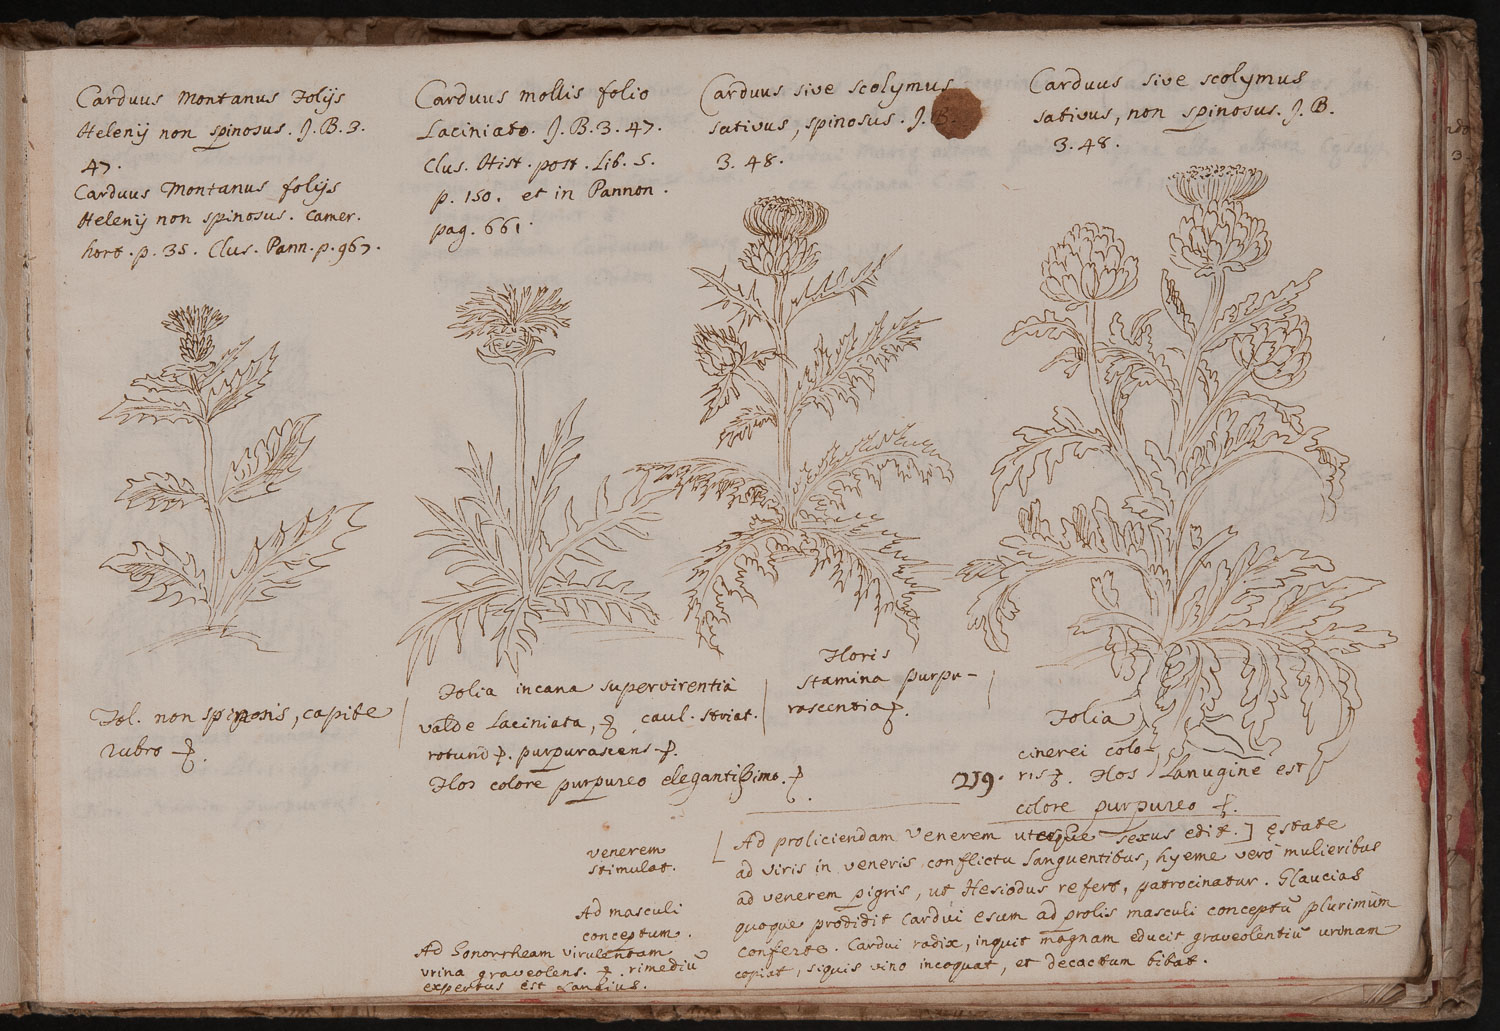 Carduus Montanus Folijs
Helenij non spinosus. J. B. 3.
47.
Carduus Montanus folijs
Helenij non spinosus. Camer.
hort. p. 35. Clus. Pann. p. 967.
Carduus mollis folio
Laciniato. J. B. 3. 47.
Clus. Hist. post. Lib. 5.
p. 150. et in Pannon.
pag. 661.
Carduus sive scolymus
sativus, spinosus. J. B.
3. 48.
Carduus sive scolymus
sativus, non spinosus. J. B.
3. 48.
Fol. non spinosis, capite
rubro
Folia incana supervirentia
valde Laciniata, caul. striat.
rotund purpurascens
Flos colore purpureo elegantissimo.
Floris
stamina purpu-
rascentia
Folia
cinerei colo-
ris. Flos Lanugine est
colore purpureo
219.
venerem
stimulat.
Ad masculi
conceptum.
Ad Gonorrheam virulentam
urina graveolens. rimediū
expertus est Langius.
[Ad proliciendam Venerem uterque sexus edit.] ęstate
ad viris in veneris conflictu Languentibus, hyeme vero mulieribus
ad venerem pigris, ut Hesiodus refert, patrocinatur. Glaucias
quoque prodidit Cardui esum ad prolis masculi conceptū plurimūm
conferre. Cardui radix, inquit magnam educit graveolentiū urinam
copiāt, siquis vino incoquat, et decoctum bibat.